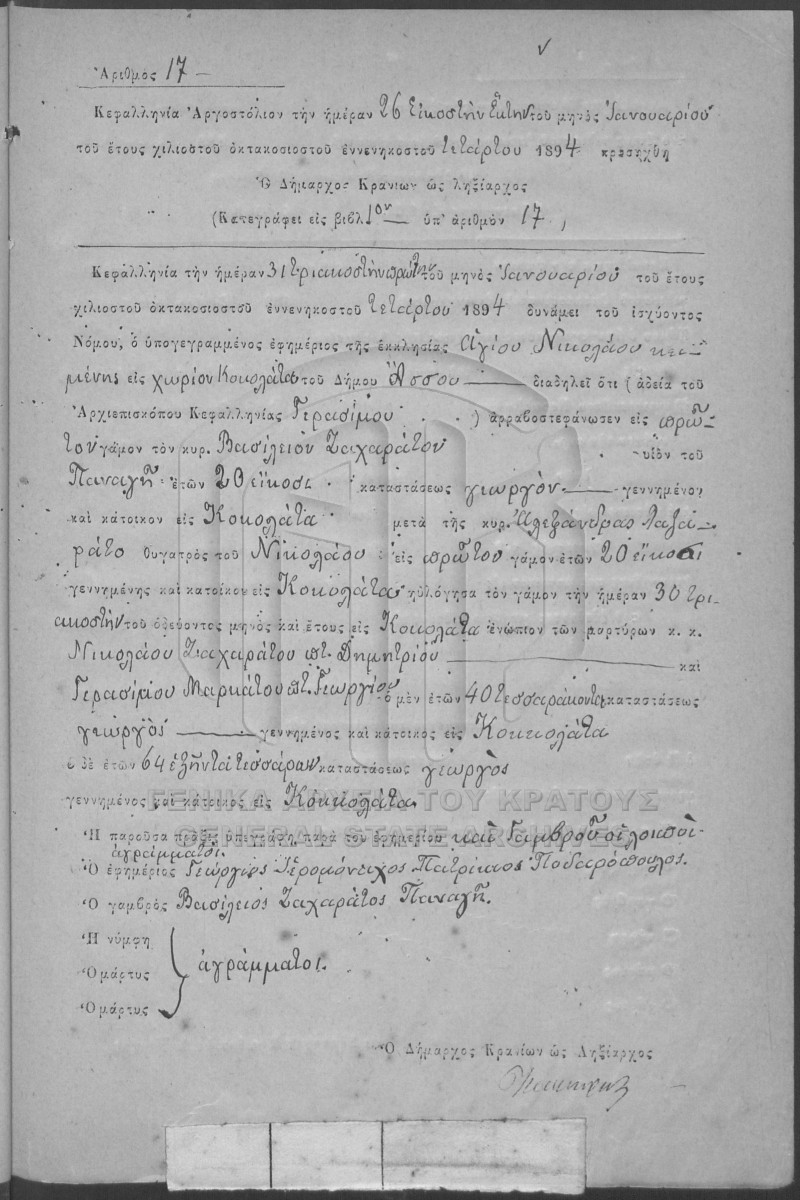 Ἀριθμὸς 17 —
Κεφαλληνία Ἀργοστόλιον τὴν ἡμέραν 26 Εἰκοστὴν ἕκτην τοῦ μηνὸς Ἰανουαρίου
τοῦ ἔτους χιλιοστοῦ ὀκτακοσιοστοῦ ἐννενηκοστοῦ τετάρτου 1894 προσήχθη
Ὁ Δήμαρχος Κρανίων ὡς ληξίαρχος
(Κατεγράφει εἰς βιβλ. 1ον — ὑπ' ἀριθμὸν 17)
Κεφαλληνία τὴν ἡμέραν 31 τριακοστὴν πρώτην τοῦ μηνὸς Ἰανουαρίου τοῦ ἔτους
χιλιοστοῦ ὀκτακοσιοστοῦ ἐννενηκοστοῦ τετάρτου 1894 δυνάμει τοῦ ἰσχύοντος
Νόμου, ὁ ὑπογεγραμμένος ἐφημέριος τῆς ἐκκλησίας Ἁγίου Νικολάου κει-
μένης εἰς χωρίον Κοκολάτα τοῦ Δήμου Ἄσσου — διαδηλεῖ ὅτι (ἀδεία τοῦ
Ἀρχιεπισκόπου Κεφαλληνίας Γερασίμου . . ) ἀρραβοστεφάνωσεν εἰς πρῶ-
τον γάμον τὸν κυρ. Βασίλειον Ζαχαράτον υἱὸν τοῦ
Παναγῆ ἐτῶν 20 εἴκοσι καταστάσεως γιωργὸν — γεννημένον
καὶ κάτοικον εἰς Κοκολάτα μετὰ τῆς κυρ. Ἀλεξάνδρας Λαζα-
ράτο θυγατρὸς τοῦ Νικολάου εἰς πρῶτον γάμον ἐτῶν 20 εἴκοσι
γεννημένης καὶ κατοίκου εἰς Κοκολάτα ηὐλόγησα τὸν γάμον τὴν ἡμέραν 30 τρι-
ακοστὴν τοῦ ὁδεύοντος μηνὸς καὶ ἔτους εἰς Κοκολάτα ἐνώπιον τῶν μαρτύρων κ. κ.
Νικολάου Ζαχαράτου ποτ. Δημητρίου — καὶ
Γερασίμου Μαρκάτου ποτ. Γεωργίου ὁ μὲν ἐτῶν 40 τεσσαράκοντα καταστάσεως
γιωργὸς — γεννημένος καὶ κάτοικος εἰς Κοκκολάτα
ὁ δὲ ἐτῶν 64 ἑξῆντα τεσσάρων καταστάσεως γιωργὸς
γεννημένος καὶ κάτοικος εἰς Κοκκολάτα
Ἡ παροῦσα πράξις ὑπεγράφη παρὰ τοῦ ἐφημερίου καὶ Γαμβροῦ οἱ λοιποὶ
ἀγράμματοι.
Ὁ ἐφημέριος Γεώργιος Ἱερομόναχος Πατρίκιος Ποδαρόπουλος.
Ὁ γαμβρὸς Βασίλειος Ζαχαράτος Παναγῆ.
Ἡ νύμφη
Ὁ μάρτυς ἀγράμματοι.
Ὁ μάρτυς
Ὁ Δήμαρχος Κρανίων ὡς Ληξίαρχος
ΓΕΝΙΚΑ ΑΡΧΕΙΑ ΤΟΥ ΚΡΑΤΟΥΣ
GENERAL STATE ARCHIVES